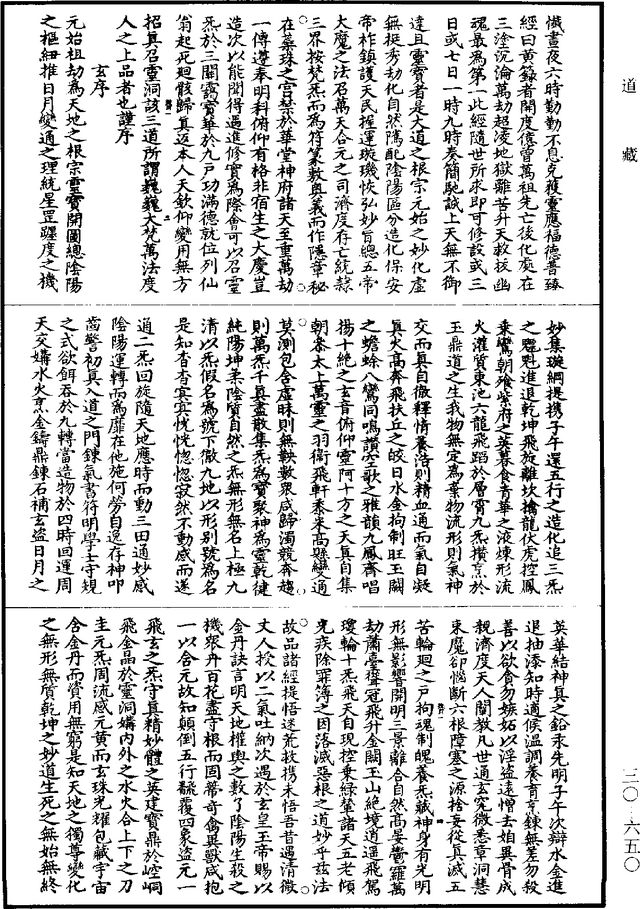 道藏
儀晝夜六時勤勤不息克獲靈應福德普臻
經曰黃籙者開度億曾萬祖先亡後化處在
三塗沉淪萬劫超凌地獄離苦升天救拔幽
魂最為第一此經隨世所求即可修設或三
日或七日一時九時奏簡馳誠上天無不御
達且靈寶者是大道之根宗元始之妙化虛
無挺秀劫化自然隲配陰陽區分造化保安
帝祚鎮護天民握運璇璣恢弘妙旨總五帝
大魔之法召萬天合元之司濟度存亡統隸
三界按梵炁而為符篆敷奧義而作隱章秘
在蘂珠之宮禁於華堂神府諸天至重萬劫
一傳遵奉明科俯仰有格非宿生之大慶豈
造次以能聞得遇進修實為際會可以召靈
炁於三關靄寶華於九戶功滿德就位列仙
翁起死迴骸歸真返本人天欽仰變用無方
招真召靈洞該三道所謂巍巍大梵萬法度
人之上品者也謹序
玄序
元始祖劫為天地之根宗靈寶開圖總陰陽
之樞紐推日月變通之理統星罡躔度之機
妙集璇綱提攜子午還五行之造化追三炁
之魁魁進退乾坤飛旋離坎擒龍伏虎控鳳
乘鸞朝飱紫府之英暮食青華之液煉形流
火灌質東池六龍飛蹈於層霄九炁攢烹於
玉鼎道之生我物無定為棄物流形則氣神
交而真自徹釋情養浩則精血通而氣自凝
真火高奔飛扶丘之皎日水金拘制旺玉闕
之蟾蜍八鸞同鳴讚空歌之雅韻九鳳齊唱
揚十絕之玄音俯仰靈阿十方之天真自集
朝泰太上萬靈之羽衛飛軒黍米高縣變通
莫測包含虛昧則無鞅數眾咸歸濁競奔趨
則萬炁千真盡散集炁為寶聚神為靈乾健
純陽坤柔陰質自然之炁無形無名上極九
清以炁假名為號下徹九地以形別號為名
是知杳杳冥冥恍恍惚惚寂然不動感而遂
通二炁回旋隨天地應時而動三田通妙感
陰陽運轉而為靡在他施何勞自逸存神叩
齒警初真入道之門鍊氣書符明學士守規
之式欲餌吞於九轉當造物於四時回運周
天交媾水火烹金鑄鼎鍊石補玄盜日月之
英華結神真之鉛汞先明子午次辯水金進
退抽添知時適候溫調養育烹鍊無差勿殺
善以欲食勿嫉妬以淫盜遠憎去姐異骨成
親濟度天人闡教凡世通玄究微悉章洞慧
束魔卻惱斷六根障塞之源捨妄從真滅五
苦輪迴之戶拘魂制魄養炁藏神身有光明
形無影響開明三景離合自然高晏鬱羅萬
劫蕭臺聳冠飛升金闕玉山絶境逍遥飛駕
瓊輪十炁飛天自現控乘綠輦諸天五老傾
光疾除罪簿之因落滅惡根之道妙乎玆法
故品諸經提悟迷荒救携未悟吾昔遇清微
丈人授以二氣吐納次遇於玄皇玉帝賜以
金丹訣言明天地權輿之數了陰陽生殺之
機眾卉百花盡守根而固蔕奇禽異獸咸抱
一以合元故知顛倒五行飜覆四象盜元一
飛玄之炁守真精妙體之英建寶鼎於崆峒
飛金晶於靈洞媾內外之水火合上下之刀
圭元炁周流感元黃而玄珠光耀包藏宇宙
含金丹而質用無窮是知天地之獨尊變化
之無形無質乾坤之妙道生死之無始無終
三〇—六五〇